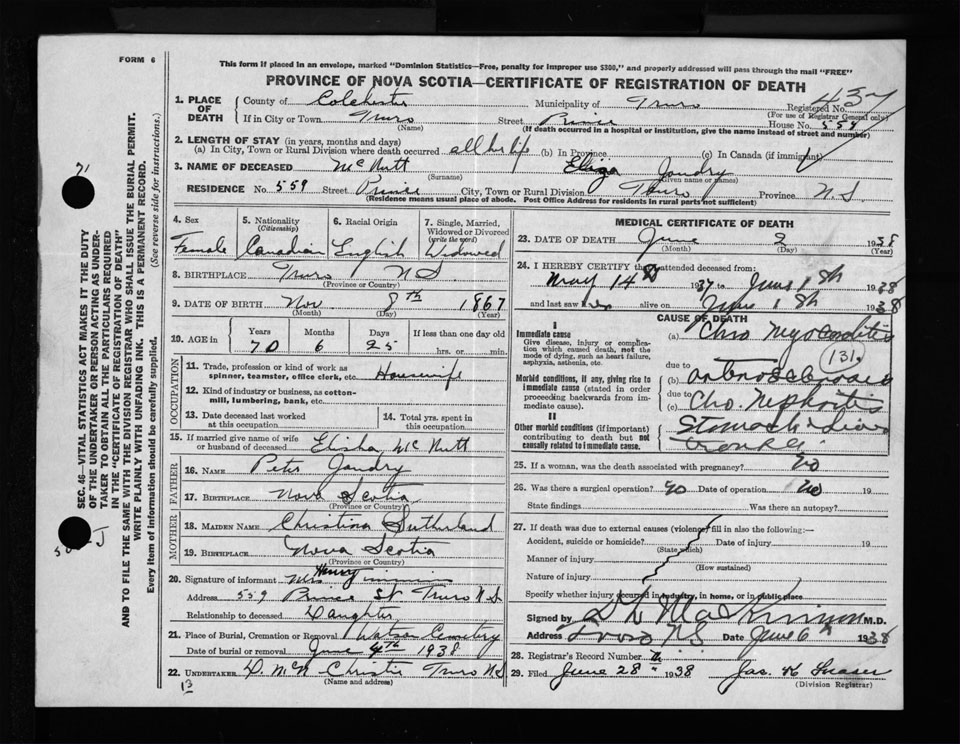 FORM 6
This form if placed in an envelope, marked "Dominion Statistics—Free, penalty for improper use $300," and properly addressed will pass through the mail "FREE"
PROVINCE OF NOVA SCOTIA—CERTIFICATE OF REGISTRATION OF DEATH
1. PLACE OF DEATH
County of Colchester Municipality of Truro Registered No. 437
(For use of Registrar General only)
If in City or Town Truro Street Prince House No. 559
(Name) (If death occurred in a hospital or institution, give the name instead of street and number)
2. LENGTH OF STAY (in years, months and days)
(a) In City, Town or Rural Division where death occurred all her life (b) In Province (c) In Canada (if immigrant)
3. NAME OF DECEASED McNutt Eliza Jondry
(Surname) (Given name or names)
RESIDENCE No. 559 Street Prince City, Town or Rural Division Truro Province N.S
(Residence means usual place of abode. Post Office Address for residents in rural parts not sufficient)
4. Sex Female
5. Nationality (Citizenship) Canadian
6. Racial Origin English
7. Single, Married, Widowed or Divorced (write the word) Widowed
8. BIRTHPLACE Truro N S
(Province or Country)
9. DATE OF BIRTH Nov 8th 1867
(Month) (Day) (Year)
10. AGE in Years Months Days If less than one day old
70 6 25 hrs. or min.
OCCUPATION
11. Trade, profession or kind of work as spinner, teamster, office clerk, etc. Housewife
12. Kind of industry or business, as cotton-mill, lumbering, bank, etc.
13. Date deceased last worked at this occupation
14. Total yrs. spent in this occupation
15. If married give name of wife or husband of deceased Elisha McNutt
FATHER
16. NAME Peter Jondry
17. BIRTHPLACE Nova Scotia
(Province or Country)
MOTHER
18. MAIDEN NAME Christina Sutherland
19. BIRTHPLACE Nova Scotia
(Province or Country)
20. Signature of informant Mrs Henry
Address 559 Prince St Truro N S
Relationship to deceased Daughter
21. Place of Burial, Cremation or Removal Watson Cemetery
Date of burial or removal June 4th 1938
22. UNDERTAKER Christie Truro N S
(Name and address)
13
MEDICAL CERTIFICATE OF DEATH
23. DATE OF DEATH June 2 1938
(Month) (Day) (Year)
24. I HEREBY CERTIFY that I attended deceased from:
May 14th 1937 to June 1st 1938
and last saw her alive on June 1st 1938
CAUSE OF DEATH
I
Immediate cause
Give disease, injury or complication which caused death, not the mode of dying, such as heart failure, asphyxia, asthenia, etc.
(a) Chro Myocarditis
131
due to
Morbid conditions, if any, giving rise to immediate cause (stated in order proceeding backwards from immediate cause).
(b) arteriosclerosis
due to
(c) Chro Nephritis
II
Other morbid conditions (if important) contributing to death but not causally related to immediate cause.
Stomach & Liver trouble
25. If a woman, was the death associated with pregnancy? No
26. Was there a surgical operation? No Date of operation no 19
State findings Was there an autopsy?
27. If death was due to external causes (violence) fill in also the following:—
Accident, suicide or homicide? Date of injury 19
(State which)
Manner of injury
(How sustained)
Nature of injury
Specify whether injury occurred in industry, in home, or in public place
Signed by MacKinnon M.D.
Address Truro N.S Date June 6th 1938
28. Registrar's Record Number
29. Filed June 28 1938 Jas. H Fraser
(Division Registrar)
SEC. 46—VITAL STATISTICS ACT MAKES IT THE DUTY OF THE UNDERTAKER OR PERSON ACTING AS UNDERTAKER TO OBTAIN ALL THE PARTICULARS REQUIRED IN THE "CERTIFICATE OF REGISTRATION OF DEATH" AND TO FILE THE SAME WITH THE DIVISION REGISTRAR WHO SHALL ISSUE THE BURIAL PERMIT.
WRITE PLAINLY WITH UNFADING INK. THIS IS A PERMANENT RECORD.
Every item of information should be carefully supplied. (See reverse side for instructions.)